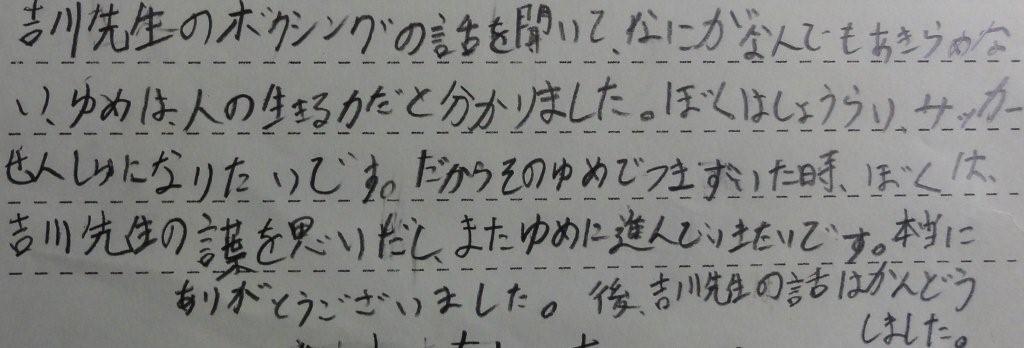 吉川先生のボクシングの話を聞いて、なにがなんでもあきらめな
い、ゆめは、人の生きる力だと分かりました。ぼくはしょうらい、サッカー
せんしゅになりたいです。だからそのゆめでつまずいた時、ぼくは、
吉川先生の言葉を思いだし、またゆめに進んでいきたいです。本当に
ありがとうございました。後、吉川先生の話はかんどう
しました。